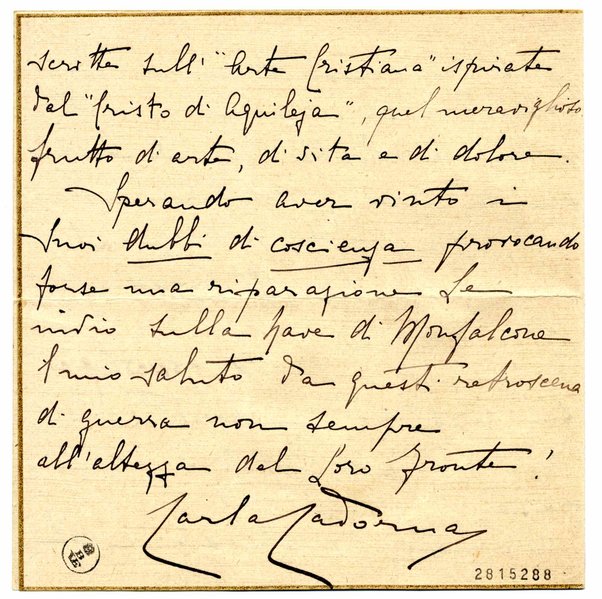 scritte sull' "Arte Cristiana" ispirate
dal "Cristo di Aquileja", quel meraviglioso
frutto di arte, di vita e di dolore.
Sperando aver vinto i
suoi dubbi di coscienza provocando
forse una riparazione Le
invio sulla Nave di Monfalcone
il mio saluto da questi retroscena
di guerra non sempre
all'altezza del Loro fronte!
Carla Cadorna
2815288